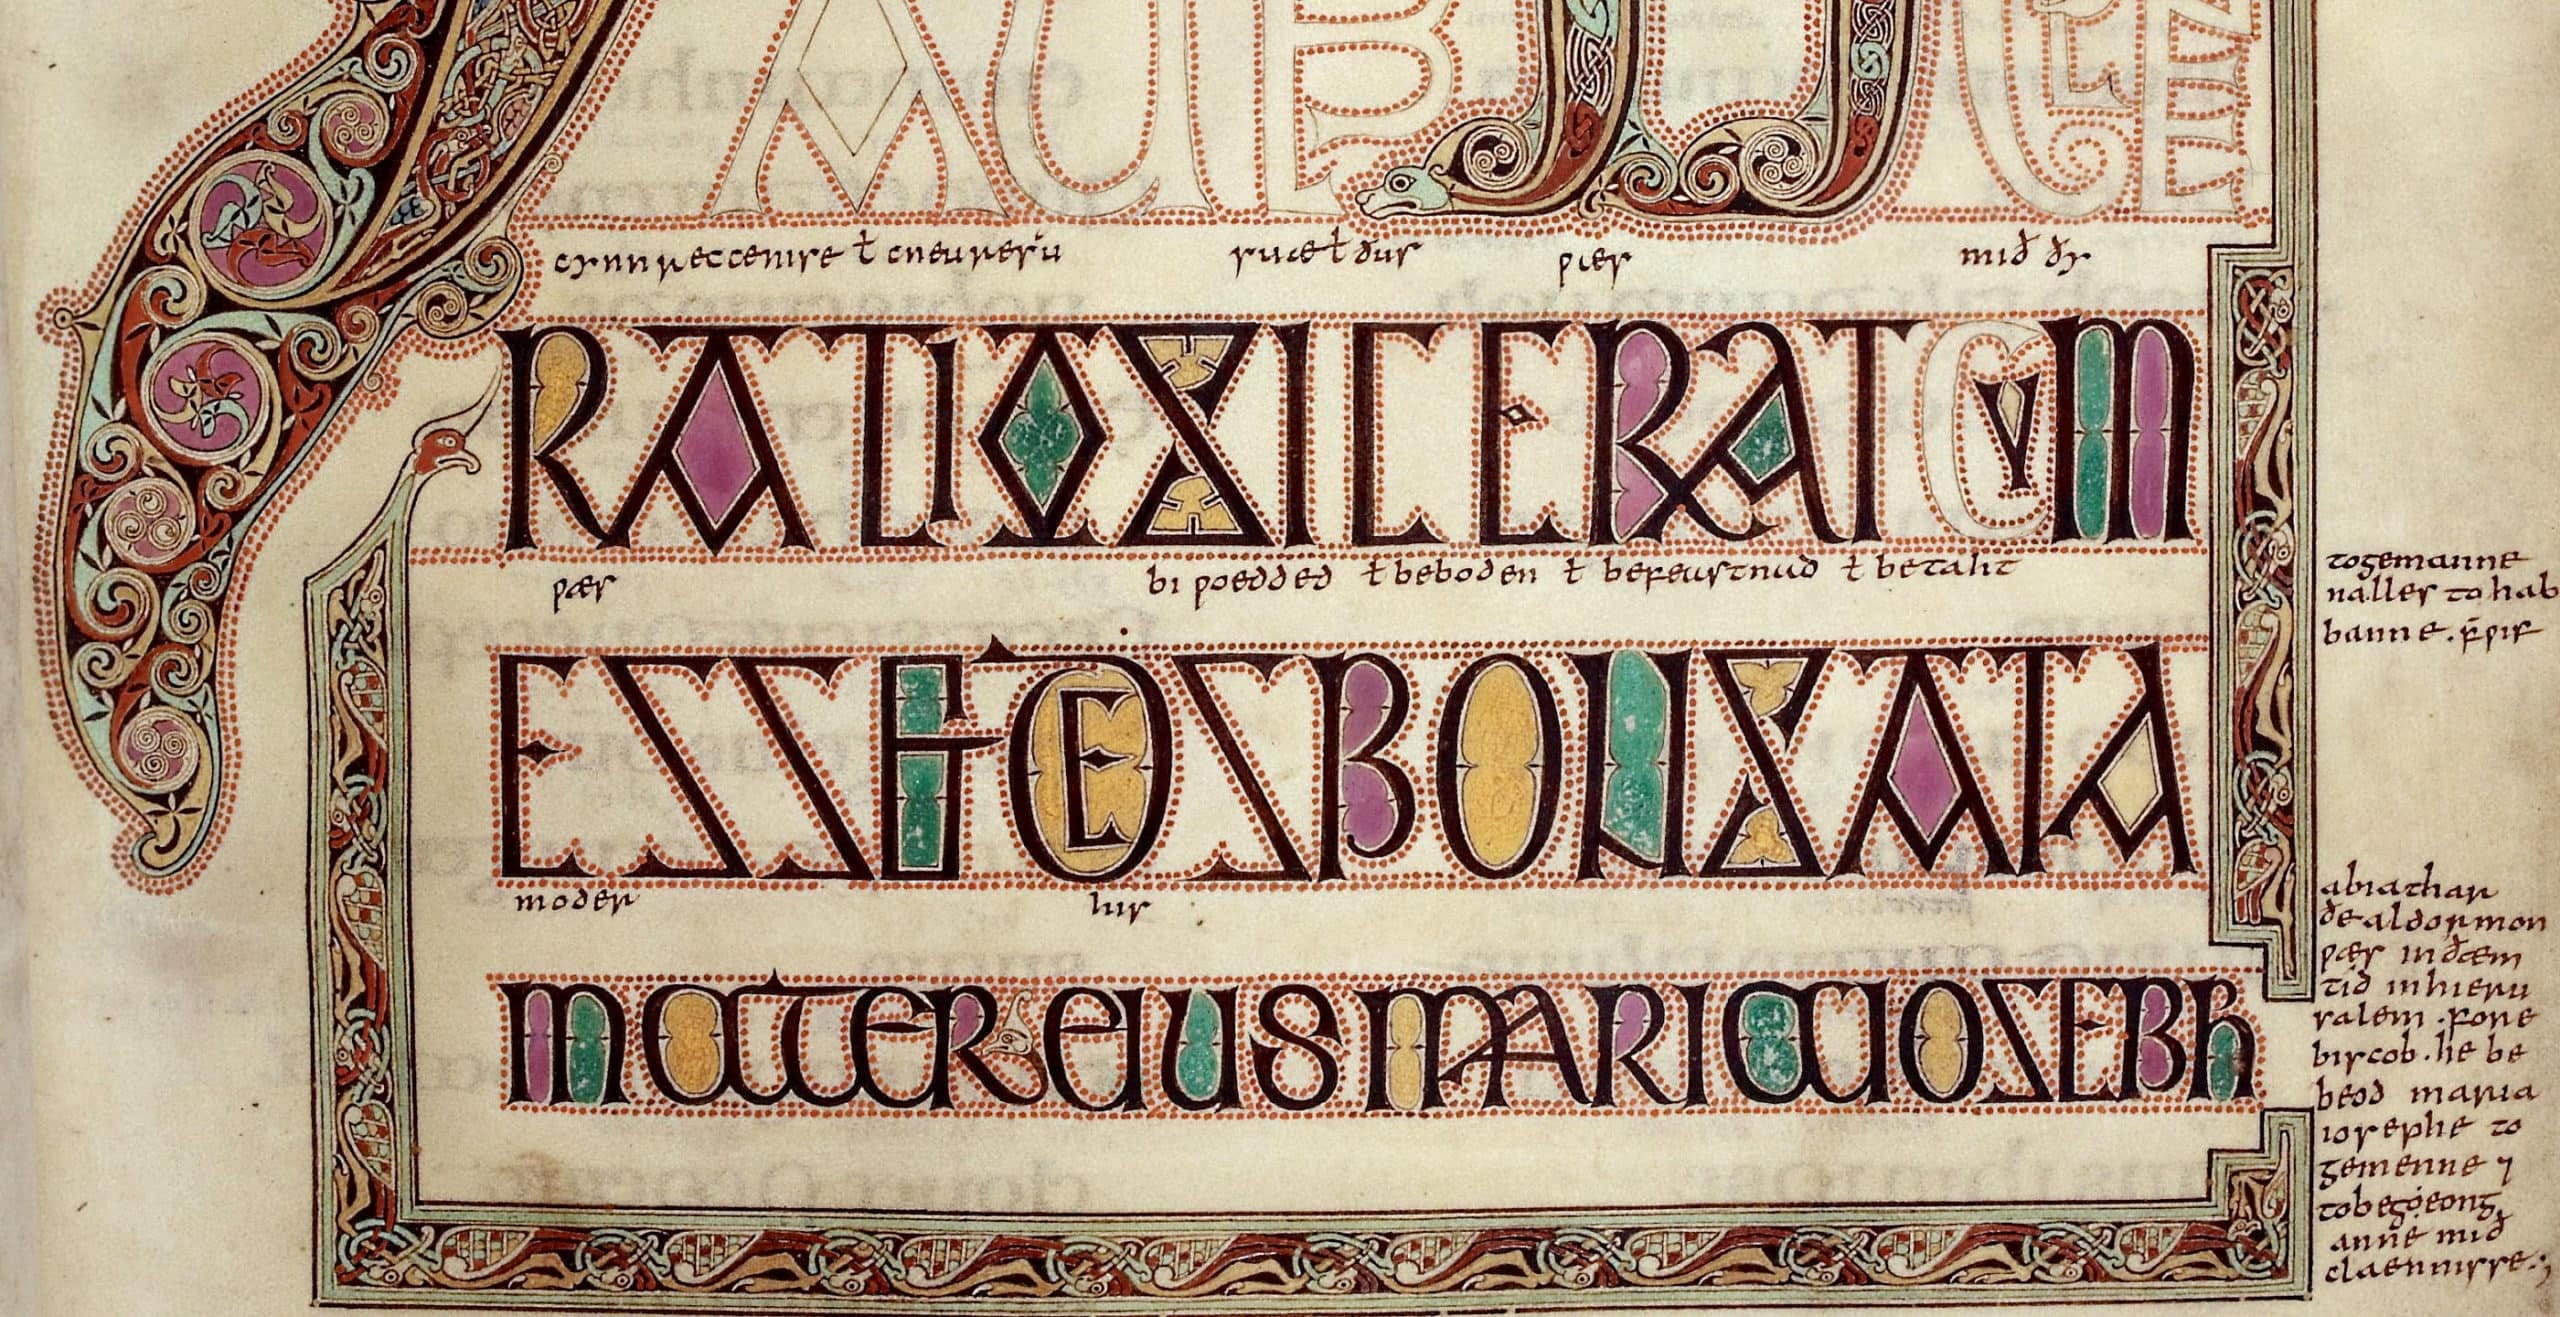 cynnreccenise ł cneuresu suæ ł ðus wæs mið ðy
RATIO SIC ERAT CUM
wæs bi woedded ł beboden ł befeastnad ł betaht
ESSET DESBONSATA
moder his
MATER EIUS MARIA IOSEBH
togemanne
nalles to hab
banne . wif
abiathar
ðe aldormon
wæs in ðæm
tid in hieru
salem . fore
biscob . he be
beod maria
iosephe to
gemenne ⁊
tobegeong
anne mið
claennisse :,